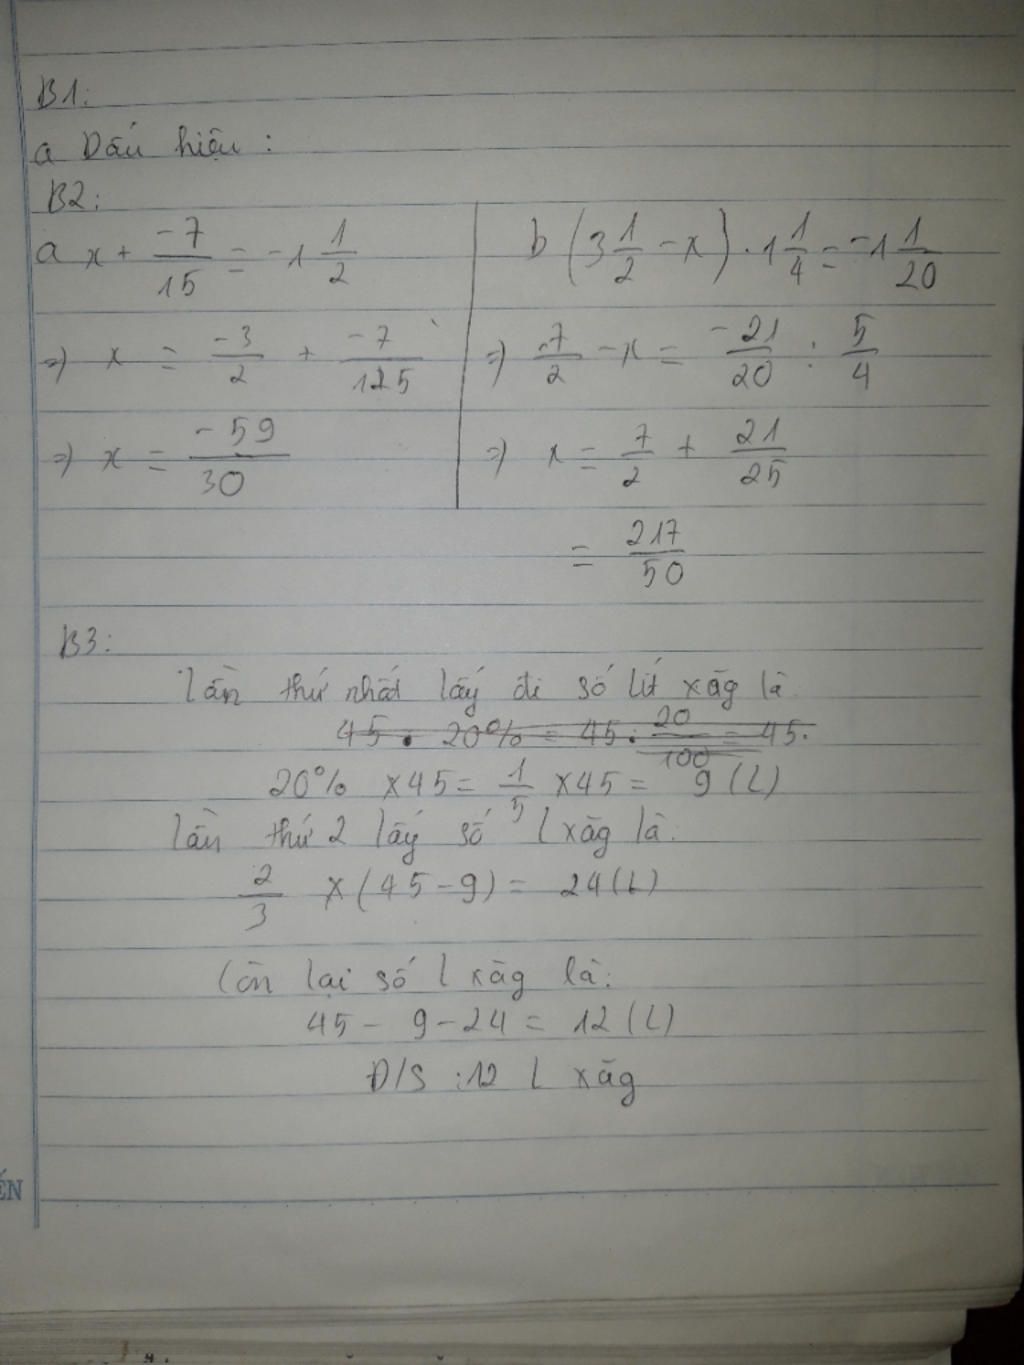 B1:
a Dấu hiệu :
B2:
a x + -7/15 = -1 1/2
=> x = -3/2 + -7/15
=> x = -59/30
b (3 1/2 - x) . 1 1/4 = -1 1/20
=> 7/2 - x = -21/20 : 5/4
=> x = 7/2 + 21/25
= 217/50
B3:
lần thứ nhất lấy đi số lít xăg là
45 . 20% = 45 . 20/100 = 45.
20% x 45 = 1/5 x 45 = 9 (L)
lần thứ 2 lấy số l xăg là:
2/3 x (45 - 9) = 24 (L)
Còn lại số l xăg là:
45 - 9 - 24 = 12 (L)
Đ/S : 12 l xăg
ẾN